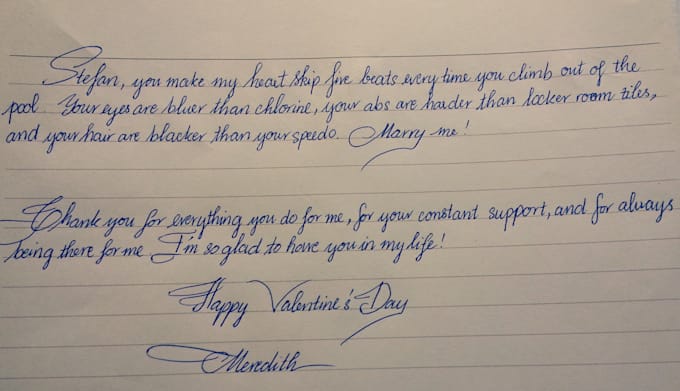 Stefan, you make my heart skip five beats every time you climb out of the
pool. Your eyes are bluer than chlorine, your abs are harder than locker room tiles,
and your hair are blacker than your speedo. Marry me!
Thank you for everything you do for me, for your constant support, and for always
being there for me. I'm so glad to have you in my life!
Happy Valentine's Day
Meredith